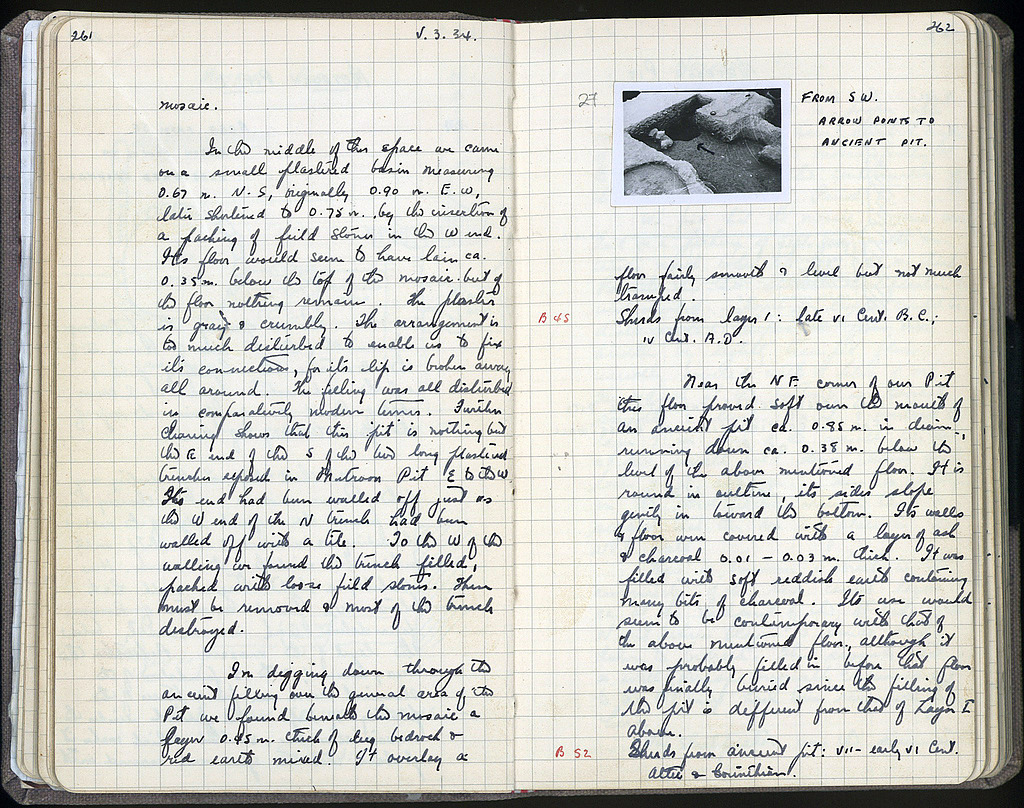 261
V. 3. 34.
mosaic.
In the middle of this space we came
on a small plastered basin measuring
0.67 m. N-S, originally 0.90 m. E-W,
later shortened to 0.75 m. by the insertion of
a packing of field stones in the W end.
Its floor would seem to have lain ca.
0.35 m. below the top of the mosaic but of
the floor nothing remains. The plaster
is gray & crumbly. The arrangement is
too much disturbed to enable us to fix
its connections, for its lip is broken away
all around. The filling was all disturbed
in comparatively modern times. Further
clearing shows that this pit is nothing but
the E end of the S of the two long plastered
trenches exposed in Metroon Pit E to the W.
Its end had been walled off just as
the W end of the N trench had been
walled off with a tile. To the W of the
walling we found the trench filled,
packed with loose field stones. These
must be removed & most of the trench
destroyed.
In digging down through the
ancient filling over the general area of the
Pit we found beneath the mosaic a
layer 0.45 m. thick of dug bedrock &
red earth mixed. It overlay a
262
27
FROM SW.
ARROW POINTS TO
ANCIENT PIT.
floor fairly smooth & level but not much
tramped.
B 45
Sherds from layer 1: late VI Cent. B.C.;
IV Cent. A.D.
Near the NE corner of our Pit
this floor proved soft over the mouth of
an ancient pit ca. 0.85 m. in diam.,
running down ca. 0.38 m. below the
level of the above mentioned floor. It is
round in outline, its sides slope
gently in toward the bottom. Its walls
& floor were covered with a layer of ash
& charcoal 0.01 - 0.03 m. thick. It was
filled with soft reddish earth containing
many bits of charcoal. Its use would
seem to be contemporary with that of
the above mentioned floor, although it
was probably filled in before that floor
was finally buried since the filling of
the pit is different from that of Layer I
above.
B 52
Sherds from ancient pit: VII - early VI Cent.
Attic & Corinthian.